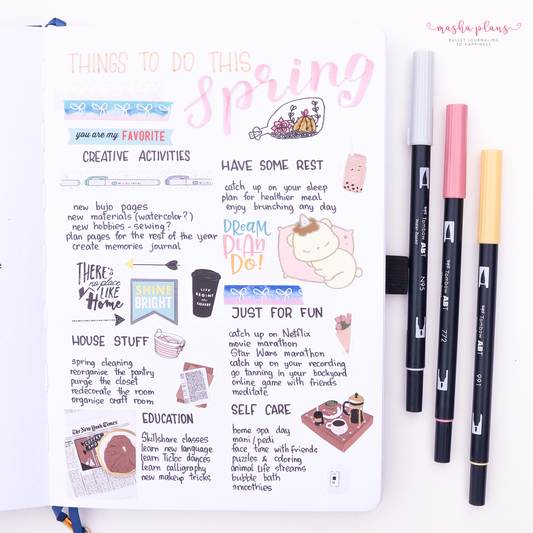 masha plans
BULLET JOURNALING
TO HAPPINESS
THINGS TO DO THIS
Spring
you are my FAVORITE
CREATIVE ACTIVITIES
MILDLINER
new bujo pages
new materials (watercolor?)
new hobbies - sewing?
plan pages for the rest of the year
create memories journal
THERE'S
no place
LIKE
Home
SHINE
BRIGHT
LIFE
BEGINS
COFFEE
HOUSE STUFF
spring cleaning
reorganise the pantry
purge the closet
redecorate the room
organise craft room
The New York Times
EDUCATION
Skillshare classes
learn new language
learn TicToc dances
learn calligraphy
new makeup tricks
HAVE SOME REST
catch up on your sleep
plan for healthier meal
enjoy brunching any day
DREAM
PLAN
DO!
JUST FOR FUN
catch up on Netflix
movie marathon
Star Wars marathon
catch up on your recording
go tanning in your backyard
online game with friends
meditate
SELF CARE
home spa day
mani/pedi
face time with friends
puzzles & coloring
animal life streams
bubble bath
smoothies
Tombow ABT
N95
Tombow ABT
772
Tombow ABT
991